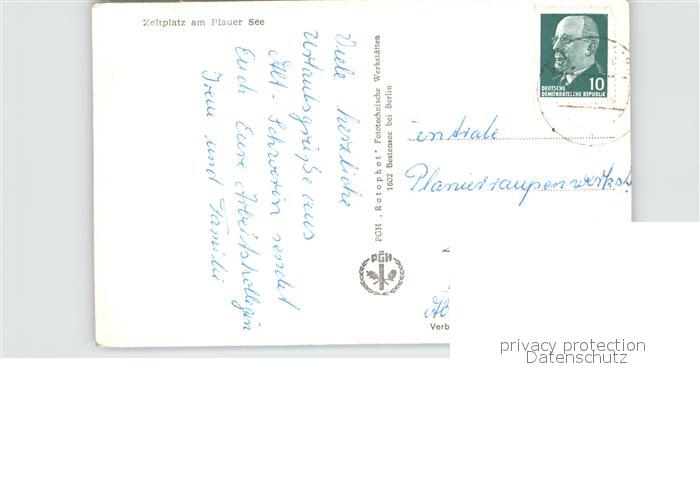 Zeltplatz am Plauer See
Viele herzliche
Urlaubsgrüße aus
Alt-Schwerin sendet
Euch Eure Arbeitskollegin
und Familie
PGH „Rotophot" Fototechnische Werkstätten
1602 Bestensee bei Berlin
PGH
10
DEUTSCHE
DEMOKRATISCHE REPUBLIK
entrale
Planierraupenwerkst
Verb
privacy protection
Datenschutz